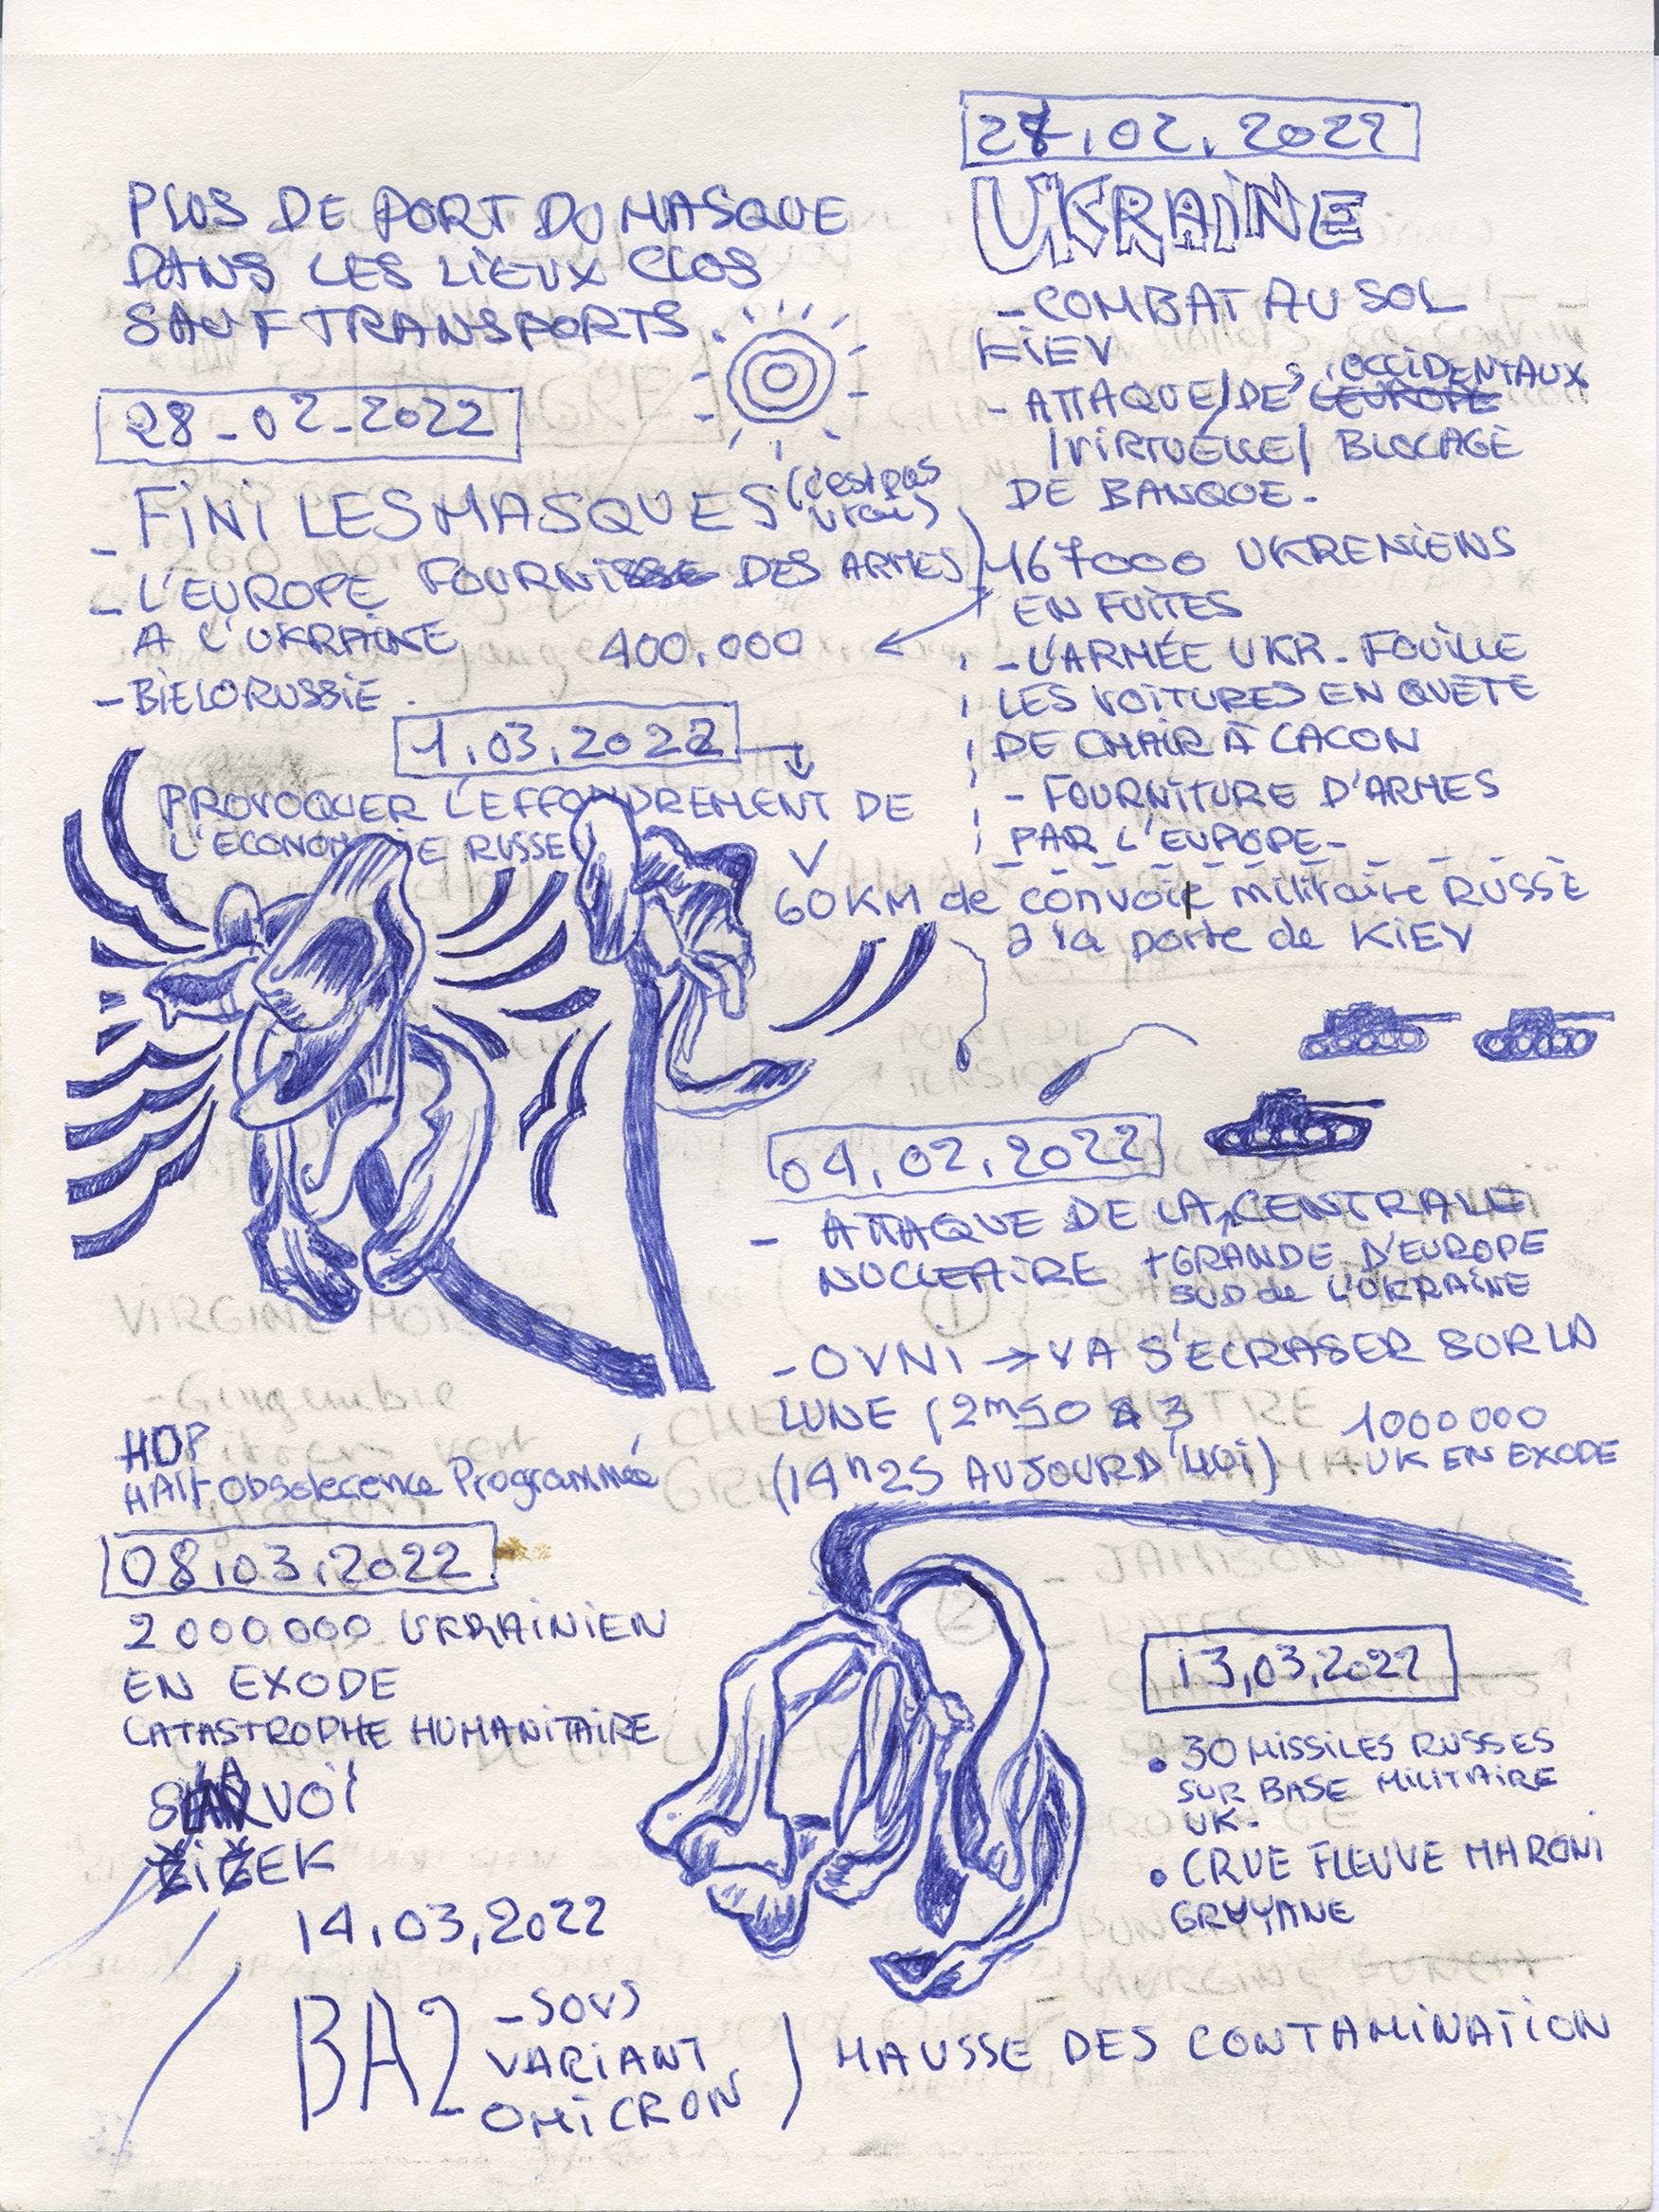 PLUS DE PORT DU MASQUE
DANS LES LIEUX CLOS
SAUF TRANSPORTS.
28-02-2022
- FINI LES MASQUES (c'est pas
vrai)
- L'EUROPE FOURNI DES ARMES
A L'UKRAINE
400.000
- BIELORUSSIE.
27.02.2022
UKRAINE
- COMBAT AU SOL
KIEV
- ATTAQUE/DES OCCIDENTAUX
L'EUROPE
/VIRTUELLE/ BLOCAGE
DE BANQUE-
167000 UKRENIENS
EN FUITES
- L'ARMÉE UKR. FOUILLE
LES VOITURES EN QUÊTE
DE CHAIR À CACON
- FOURNITURE D'ARMES
PAR L'EUROPE-
1.03.2022
PROVOQUER L'EFFONDREMENT DE
L'ECONOMIE RUSSE
60KM de convoi militaire RUSSE
à la porte de KIEV
04.02.2022
- ATTAQUE DE LA CENTRALE
NUCLEAIRE + GRANDE D'EUROPE
SUD de L'UKRAINE
- OVNI → VA S'ECRASER SUR LA
LUNE (2m50 à 3
(14h25 AUJOURD'HUI)
1000000
UK EN EXODE
HOP
HAlt Obsolecence Programmée
08.03.2022
2000000 UKRAINIEN
EN EXODE
CATASTROPHE HUMANITAIRE
SLAVOÏ
ŽIŽEK
13,03,2022
• 30 MISSILES RUSSES
SUR BASE MILITAIRE
UK-
• CRUE FLEUVE MARONI
GRUYANE
14.03,2022
BA2 - SOUS
VARIANT
OMICRON
) HAUSSE DES CONTAMINATION